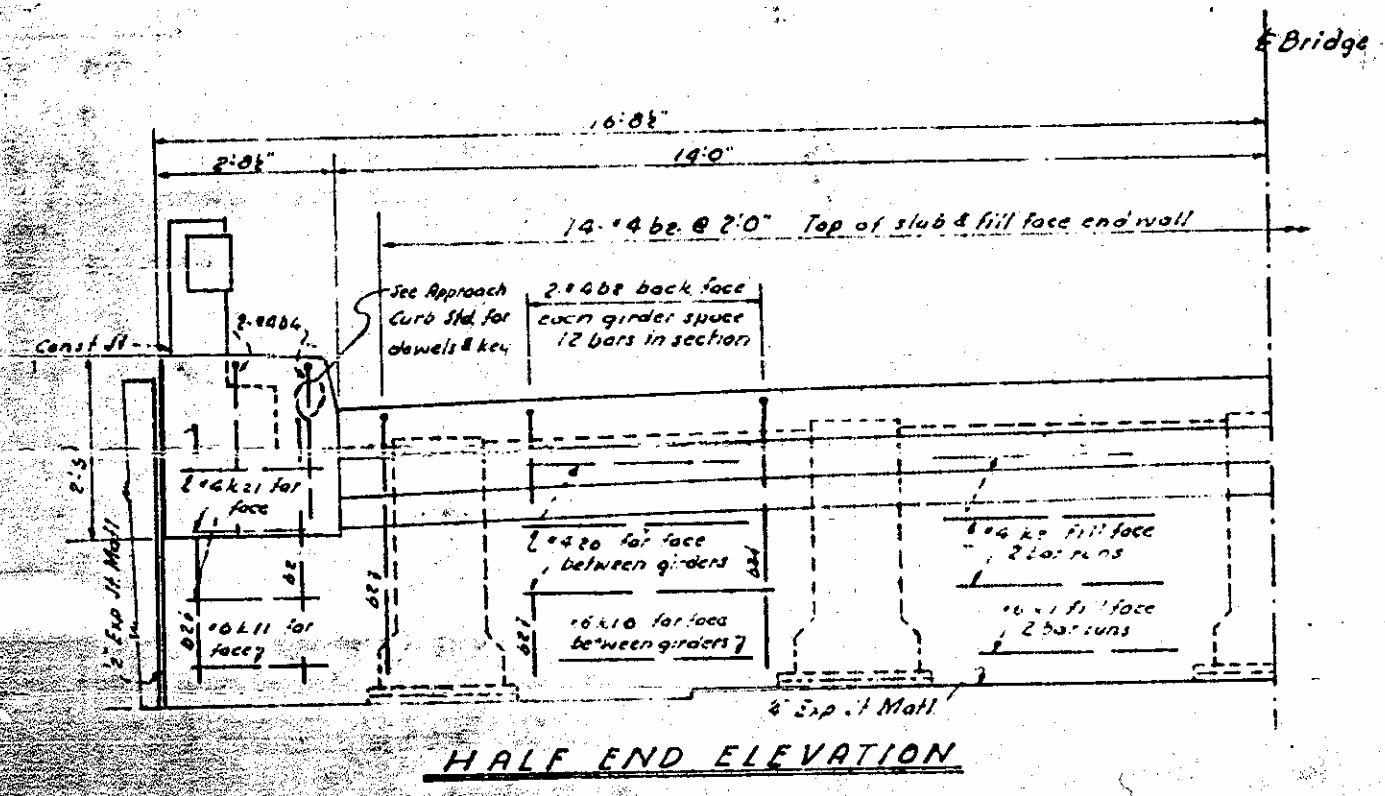 ℄ Bridge
16'-8½"
2'-8½"
14'-0"
14-#4 b2 @ 2'-0" Top of slab & fill face end wall
See Approach
Curb Std. for
dowels & key
2-#4 b2 back face
each girder space
12 bars in section
2-#4 b4
Const Jt
2'-5"
½" Exp Jt. Matl
2 #4 k21 far
face
#6 k11 far
face
b2
b2
b2
b2
b2
2 #4 20 far face
between girders
#6 k10 far face
between girders
#4 k2 fill face
2 bar runs
#6 k1 fill face
2 bar runs
Exp Jt Matl
HALF END ELEVATION